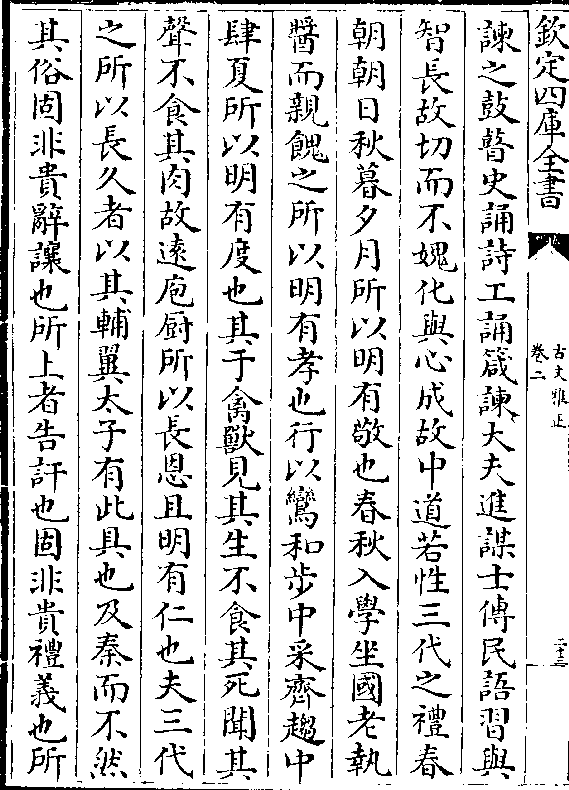 欽定四庫全書
古文雅正
卷二
二十三
諫之鼓瞽史誦詩工誦箴諫大夫進謀士傳民語習與
智長故切而不媿化與心成故中道若性三代之禮春
朝朝日秋暮夕月所以明有敬也春秋入學坐國老執
醬而親餽之所以明有孝也行以鸞和步中采齊趨中
肆夏所以明有度也其于禽獸見其生不食其死聞其
聲不食其肉故遠庖厨所以長恩且明有仁也夫三代
之所以長久者以其輔翼太子有此具也及秦而不然
其俗固非貴辭讓也所上者告訐也固非貴禮義也所